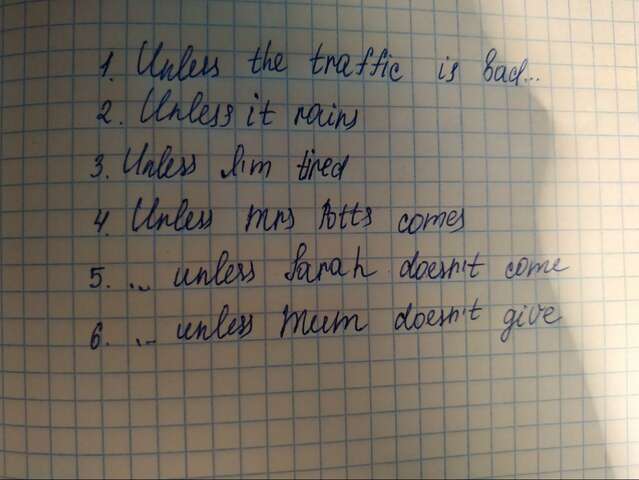 1. Unless the traffic is bad...
2. Unless it rains
3. Unless I'm tired
4. Unless Mrs Potts comes
5. ... unless Sarah doesn't come
6. ... unless Mum doesn't give